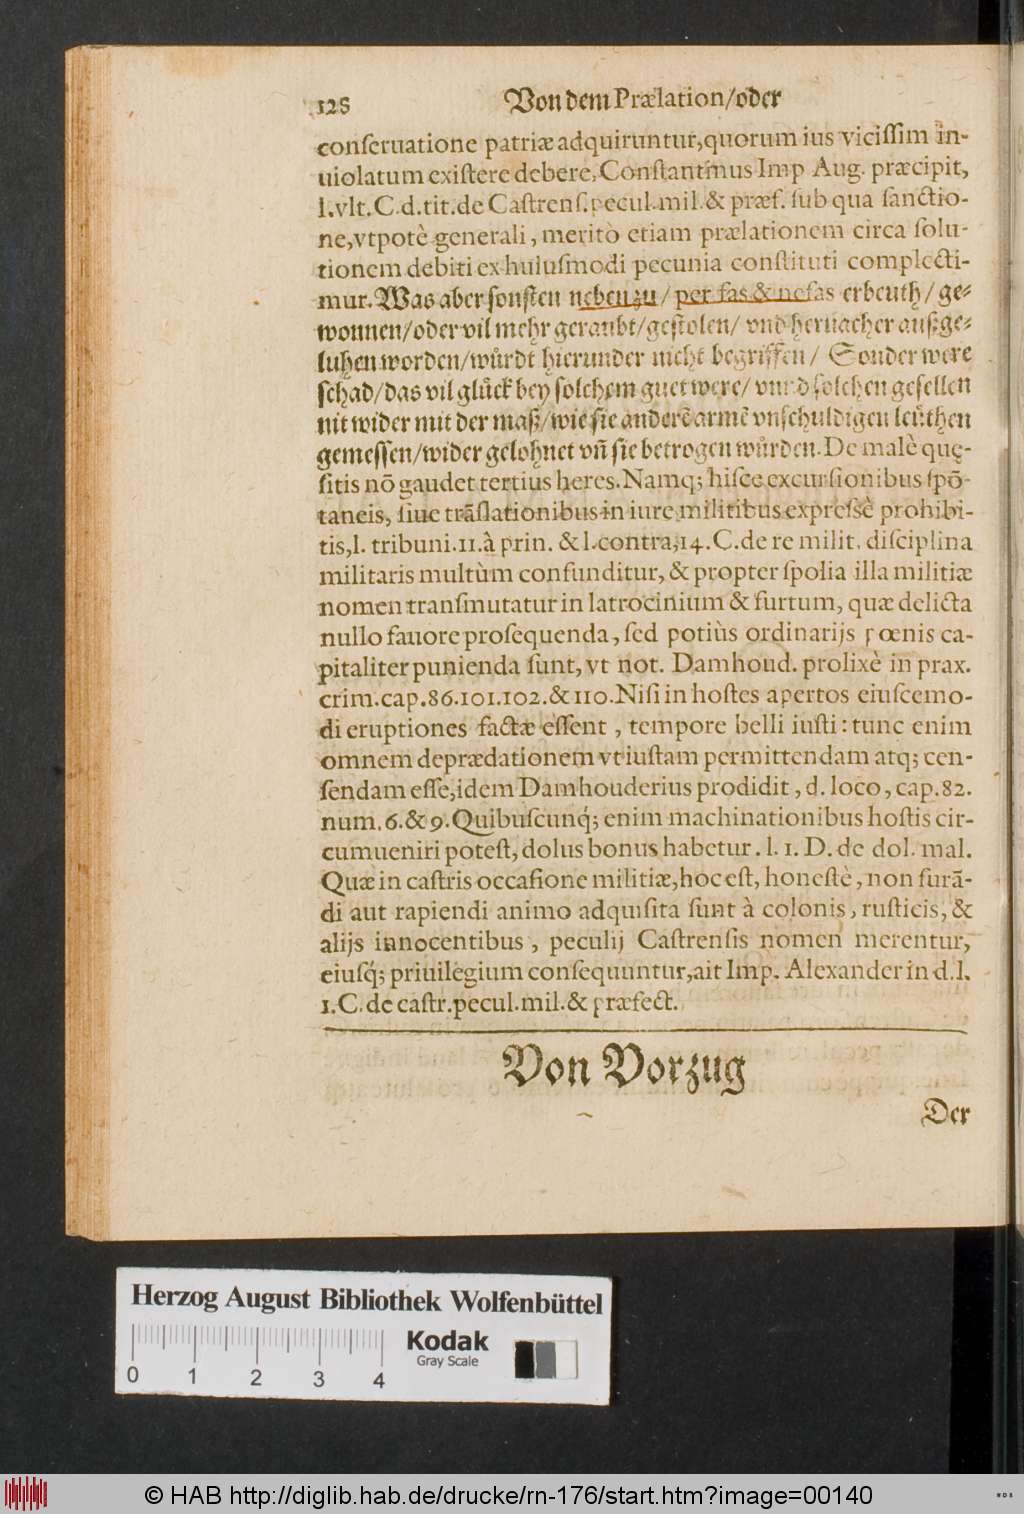 128 Von dem Prælation/oder
conſeruatione patriæ adquiruntur, quorum ius viciſſim in-
uiolatum exiſtere debere, Conſtantinus Imp Aug. præcipit,
l. vlt. C. d. tit. de Caſtrenſ. pecul. mil. & præf. ſub qua ſanctio-
ne, vtpotè generali, meritò etiam prælationem circa ſolu-
tionem debiti ex huiuſmodi pecunia conſtituti complecti-
mur. Was aber ſonſten neben zu / per fas & nefas erbeuth / ge-
wonnen/oder vil mehr geraubt/geſtolen/ vnd hernacher außge-
luhen worden/wuͤrdt hierunder nicht begriffen / Sonder were
ſchad/das vil gluͤck bey ſolchem guet were/ vnnd ſolchen geſellen
nit wider mit der maß/wie ſie anderē armē vnſchuldigen leuͤthen
gemeſſen/wider gelohnet vñ ſie betrogen wuͤrden. De malè quę-
ſitis nō gaudet tertius heres. Namq; hiſce excurſionibus ſpō-
taneis, ſiue trāſlationibus in iure militibus expreſsè prohibi-
tis, l. tribuni. 11. à prin. & l. contra, 14. C. de re milit. diſciplina
militaris multùm confunditur, & propter ſpolia illa militiæ
nomen tranſmutatur in latrocinium & furtum, quæ delicta
nullo fauore proſequenda, ſed potiùs ordinarijs pœnis ca-
pitaliter punienda ſunt, vt not. Damhoud. prolixè in prax.
crim. cap. 86. 101. 102. & 110. Niſi in hoſtes apertos eiuſcemo-
di eruptiones factæ eſſent, tempore belli iuſti: tunc enim
omnem deprædationem vt iuſtam permittendam atq; cen-
ſendam eſſe, idem Damhouderius prodidit, d. loco, cap. 82.
num. 6. & 9. Quibuſcunq́; enim machinationibus hoſtis cir-
cumueniri poteſt, dolus bonus habetur. l. 1. D. de dol. mal.
Quæ in caſtris occaſione militiæ, hoc eſt, honeſtè, non furā-
di aut rapiendi animo adquiſita ſunt à colonis, ruſticis, &
alijs innocentibus, peculij Caſtrenſis nomen merentur,
eiuſq́; priuilegium conſequuntur, ait Imp. Alexander in d. l.
1. C. de caſtr. pecul. mil. & præfect.
Von Vorzug
Der
Herzog August Bibliothek Wolfenbüttel
Kodak
Gray Scale
0 1 2 3 4
© HAB http://diglib.hab.de/drucke/rn-176/start.htm?image=00140